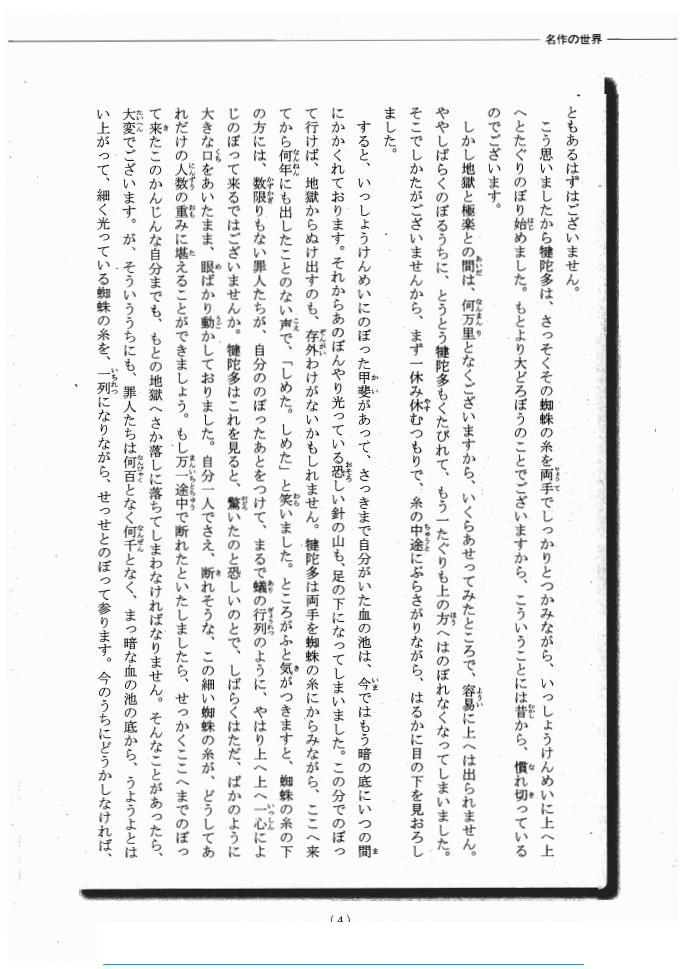 名作の世界
ともあるはずはございません。
こう思いましたから犍陀多は、さっそくその蜘蛛の糸を両手でしっかりとつかみながら、いっしょうけんめいに上へ上
へとたぐりのぼり始めました。もとより大どろぼうのことでございますから、こういうことには昔から、慣れ切っている
のでございます。
しかし地獄と極楽との間は、何万里となくございますから、いくらあせってみたところで、容易に上へは出られません。
ややしばらくのぼるうちに、とうとう犍陀多もくたびれて、もう一たぐりも上の方へはのぼれなくなってしまいました。
そこでしかたがございませんから、まず一休み休むつもりで、糸の中途にぶらさがりながら、はるかに目の下を見おろし
ました。
すると、いっしょうけんめいにのぼった甲斐があって、さっきまで自分がいた血の池は、今ではもう暗の底にいつの間
にかかくれております。それからあのぼんやり光っている恐しい針の山も、足の下になってしまいました。この分でのぼっ
て行けば、地獄からぬけ出すのも、存外わけがないかもしれません。犍陀多は両手を蜘蛛の糸にからみながら、ここへ来
てから何年にも出したことのない声で、「しめた。しめた」と笑いました。ところがふと気がつきますと、蜘蛛の糸の下
の方には、数限りもない罪人たちが、自分ののぼったあとをつけて、まるで蟻の行列のように、やはり上へ上へ一心によ
じのぼって来るではございませんか。犍陀多はこれを見ると、驚いたのと恐しいのとで、しばらくはただ、ばかのように
大きな口をあいたまま、眼ばかり動かしておりました。自分一人でさえ、断れそうな、この細い蜘蛛の糸が、どうしてあ
れだけの人数の重みに堪えることができましょう。もし万一途中で断れたといたしましたら、せっかくここへまでのぼっ
て来たこのかんじんな自分までも、もとの地獄へさか落しに落ちてしまわなければなりません。そんなことがあったら、
大変でございます。が、そういううちにも、罪人たちは何百となく何千となく、まっ暗な血の池の底から、うようよとは
い上がって、細く光っている蜘蛛の糸を、一列になりながら、せっせとのぼって参ります。今のうちにどうかしなければ、
(4)